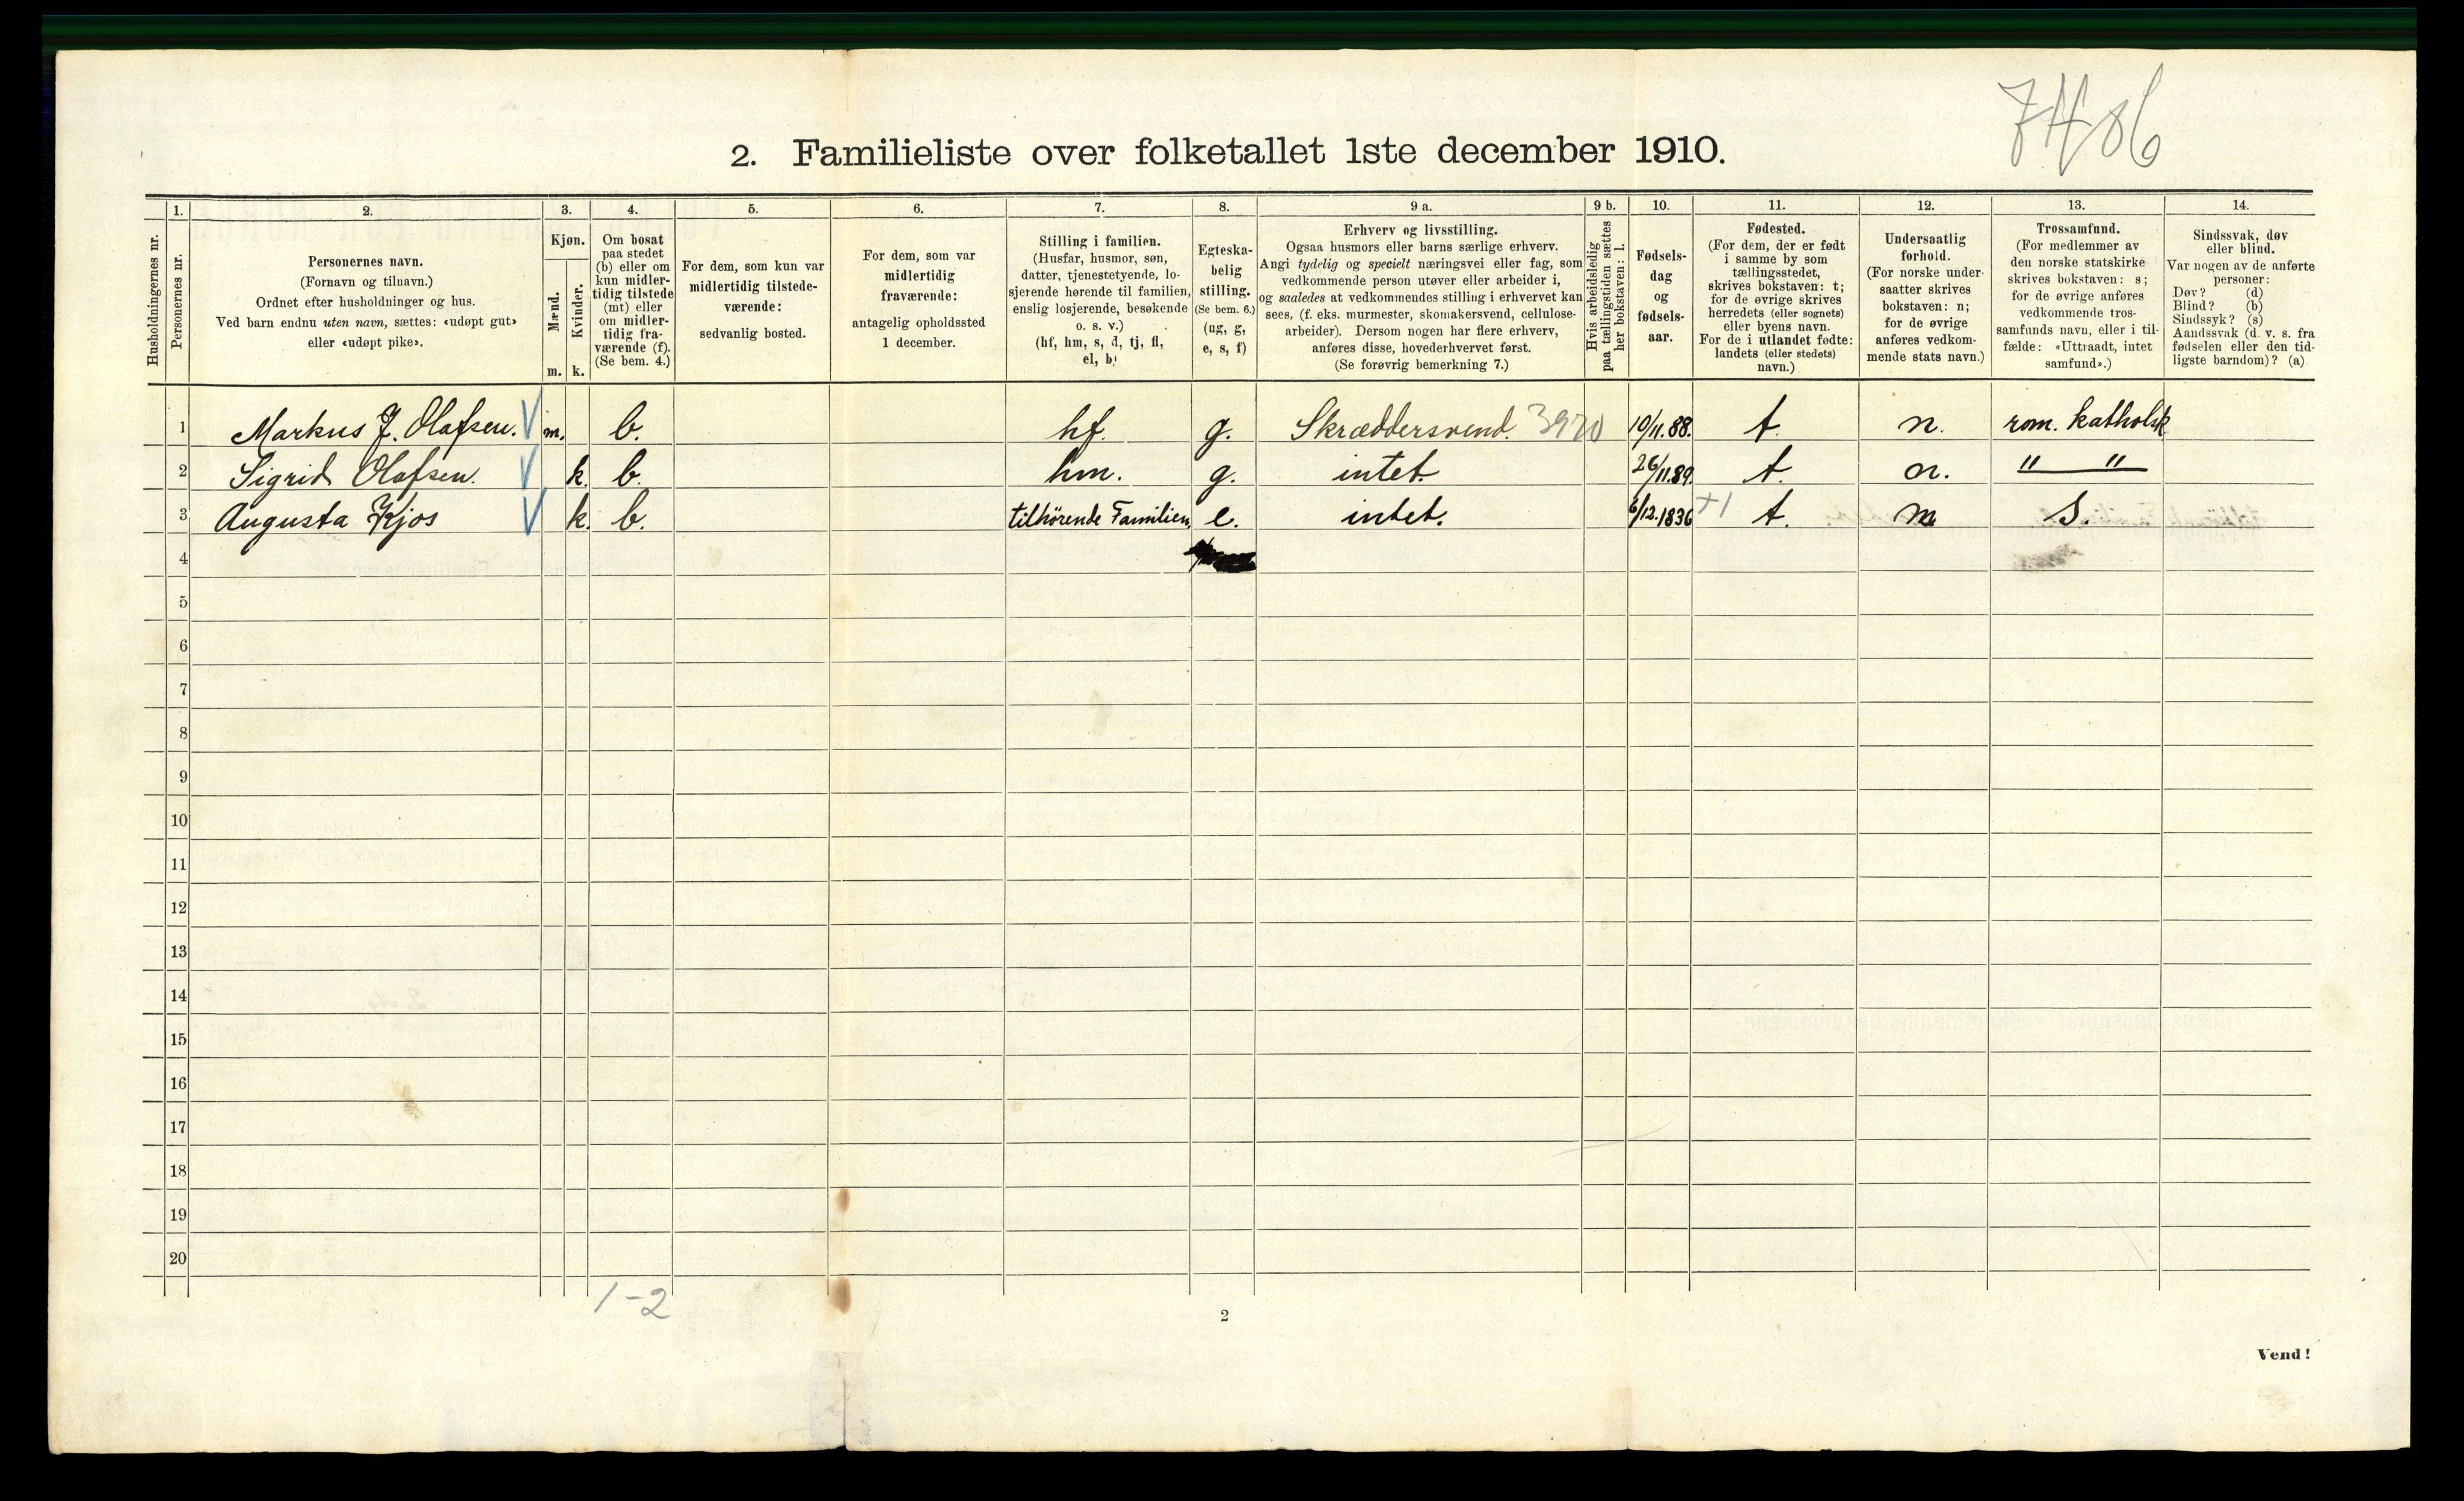 7486
2. Familieliste over folketallet 1ste december 1910.
Husholdningernes nr.
1.
Personernes nr.
2.
Personernes navn.
(Fornavn og tilnavn.)
Ordnet efter husholdninger og hus.
Ved barn endnu uten navn, sættes: «udøpt gut»
eller «udøpt pike».
3.
Kjøn.
Mænd.
Kvinder.
m. k.
4.
Om bosat
paa stedet
(b) eller om
kun midler-
tidig tilstede
(mt) eller
om midler-
tidig fra-
værende (f).
(Se bem. 4.)
5.
For dem, som kun var
midlertidig tilstede-
værende:
sedvanlig bosted.
6.
For dem, som var
midlertidig
fraværende:
antagelig opholdssted
1 december.
7.
Stilling i familien.
(Husfar, husmor, søn,
datter, tjenestetyende, lo-
sjerende hørende til familien,
enslig losjerende, besøkende
o. s. v.)
(hf, hm, s, d, tj, fl,
el, b)
8.
Egteska-
belig
stilling.
(Se bem. 6.)
(ug, g,
e, s, f)
9 a.
Erhverv og livsstilling.
Ogsaa husmors eller barns særlige erhverv.
Angi tydelig og specielt næringsvei eller fag, som
vedkommende person utøver eller arbeider i,
og saaledes at vedkommendes stilling i erhvervet kan
sees, (f. eks. murmester, skomakersvend, cellulose-
arbeider). Dersom nogen har flere erhverv,
anføres disse, hovederhvervet først.
(Se forøvrig bemerkning 7.)
9 b.
Hvis arbeidsledig
paa tællingstiden sættes
her bokstaven: l.
10.
Fødsels-
dag
og
fødsels-
aar.
11.
Fødested.
(For dem, der er født
i samme by som
tællingsstedet,
skrives bokstaven: t;
for de øvrige skrives
herredets (eller sognets)
eller byens navn.
For de i utlandet fødte:
landets (eller stedets)
navn.)
12.
Undersaatlig
forhold.
(For norske under-
saatter skrives
bokstaven: n;
for de øvrige
anføres vedkom-
mende stats navn.)
13.
Trossamfund.
(For medlemmer av
den norske statskirke
skrives bokstaven: s;
for de øvrige anføres
vedkommende tros-
samfunds navn, eller i til-
fælde: «Uttraadt, intet
samfund».)
14.
Sindssvak, døv
eller blind.
Var nogen av de anførte
personer:
Døv? (d)
Blind? (b)
Sindssyk? (s)
Aandssvak (d. v. s. fra
fødselen eller den tid-
ligste barndom)? (a)
1 Markus J. Olafsen. V m. b. hf. g. Skræddersvend. 3970 19/11.88. t. n. rom. katholsk
2 Sigrid Olafsen. V k. b. hm. g. intet. 26/11.89. t. n. " — "
3 Augusta Kjos V k. b. tilhörende Familien, e. intet. 6/12.1836 +1 t. n S.
4
5
6
7
8
9
10
11
12
13
14
15
16
17
18
19
20
1-2
2
Vend!